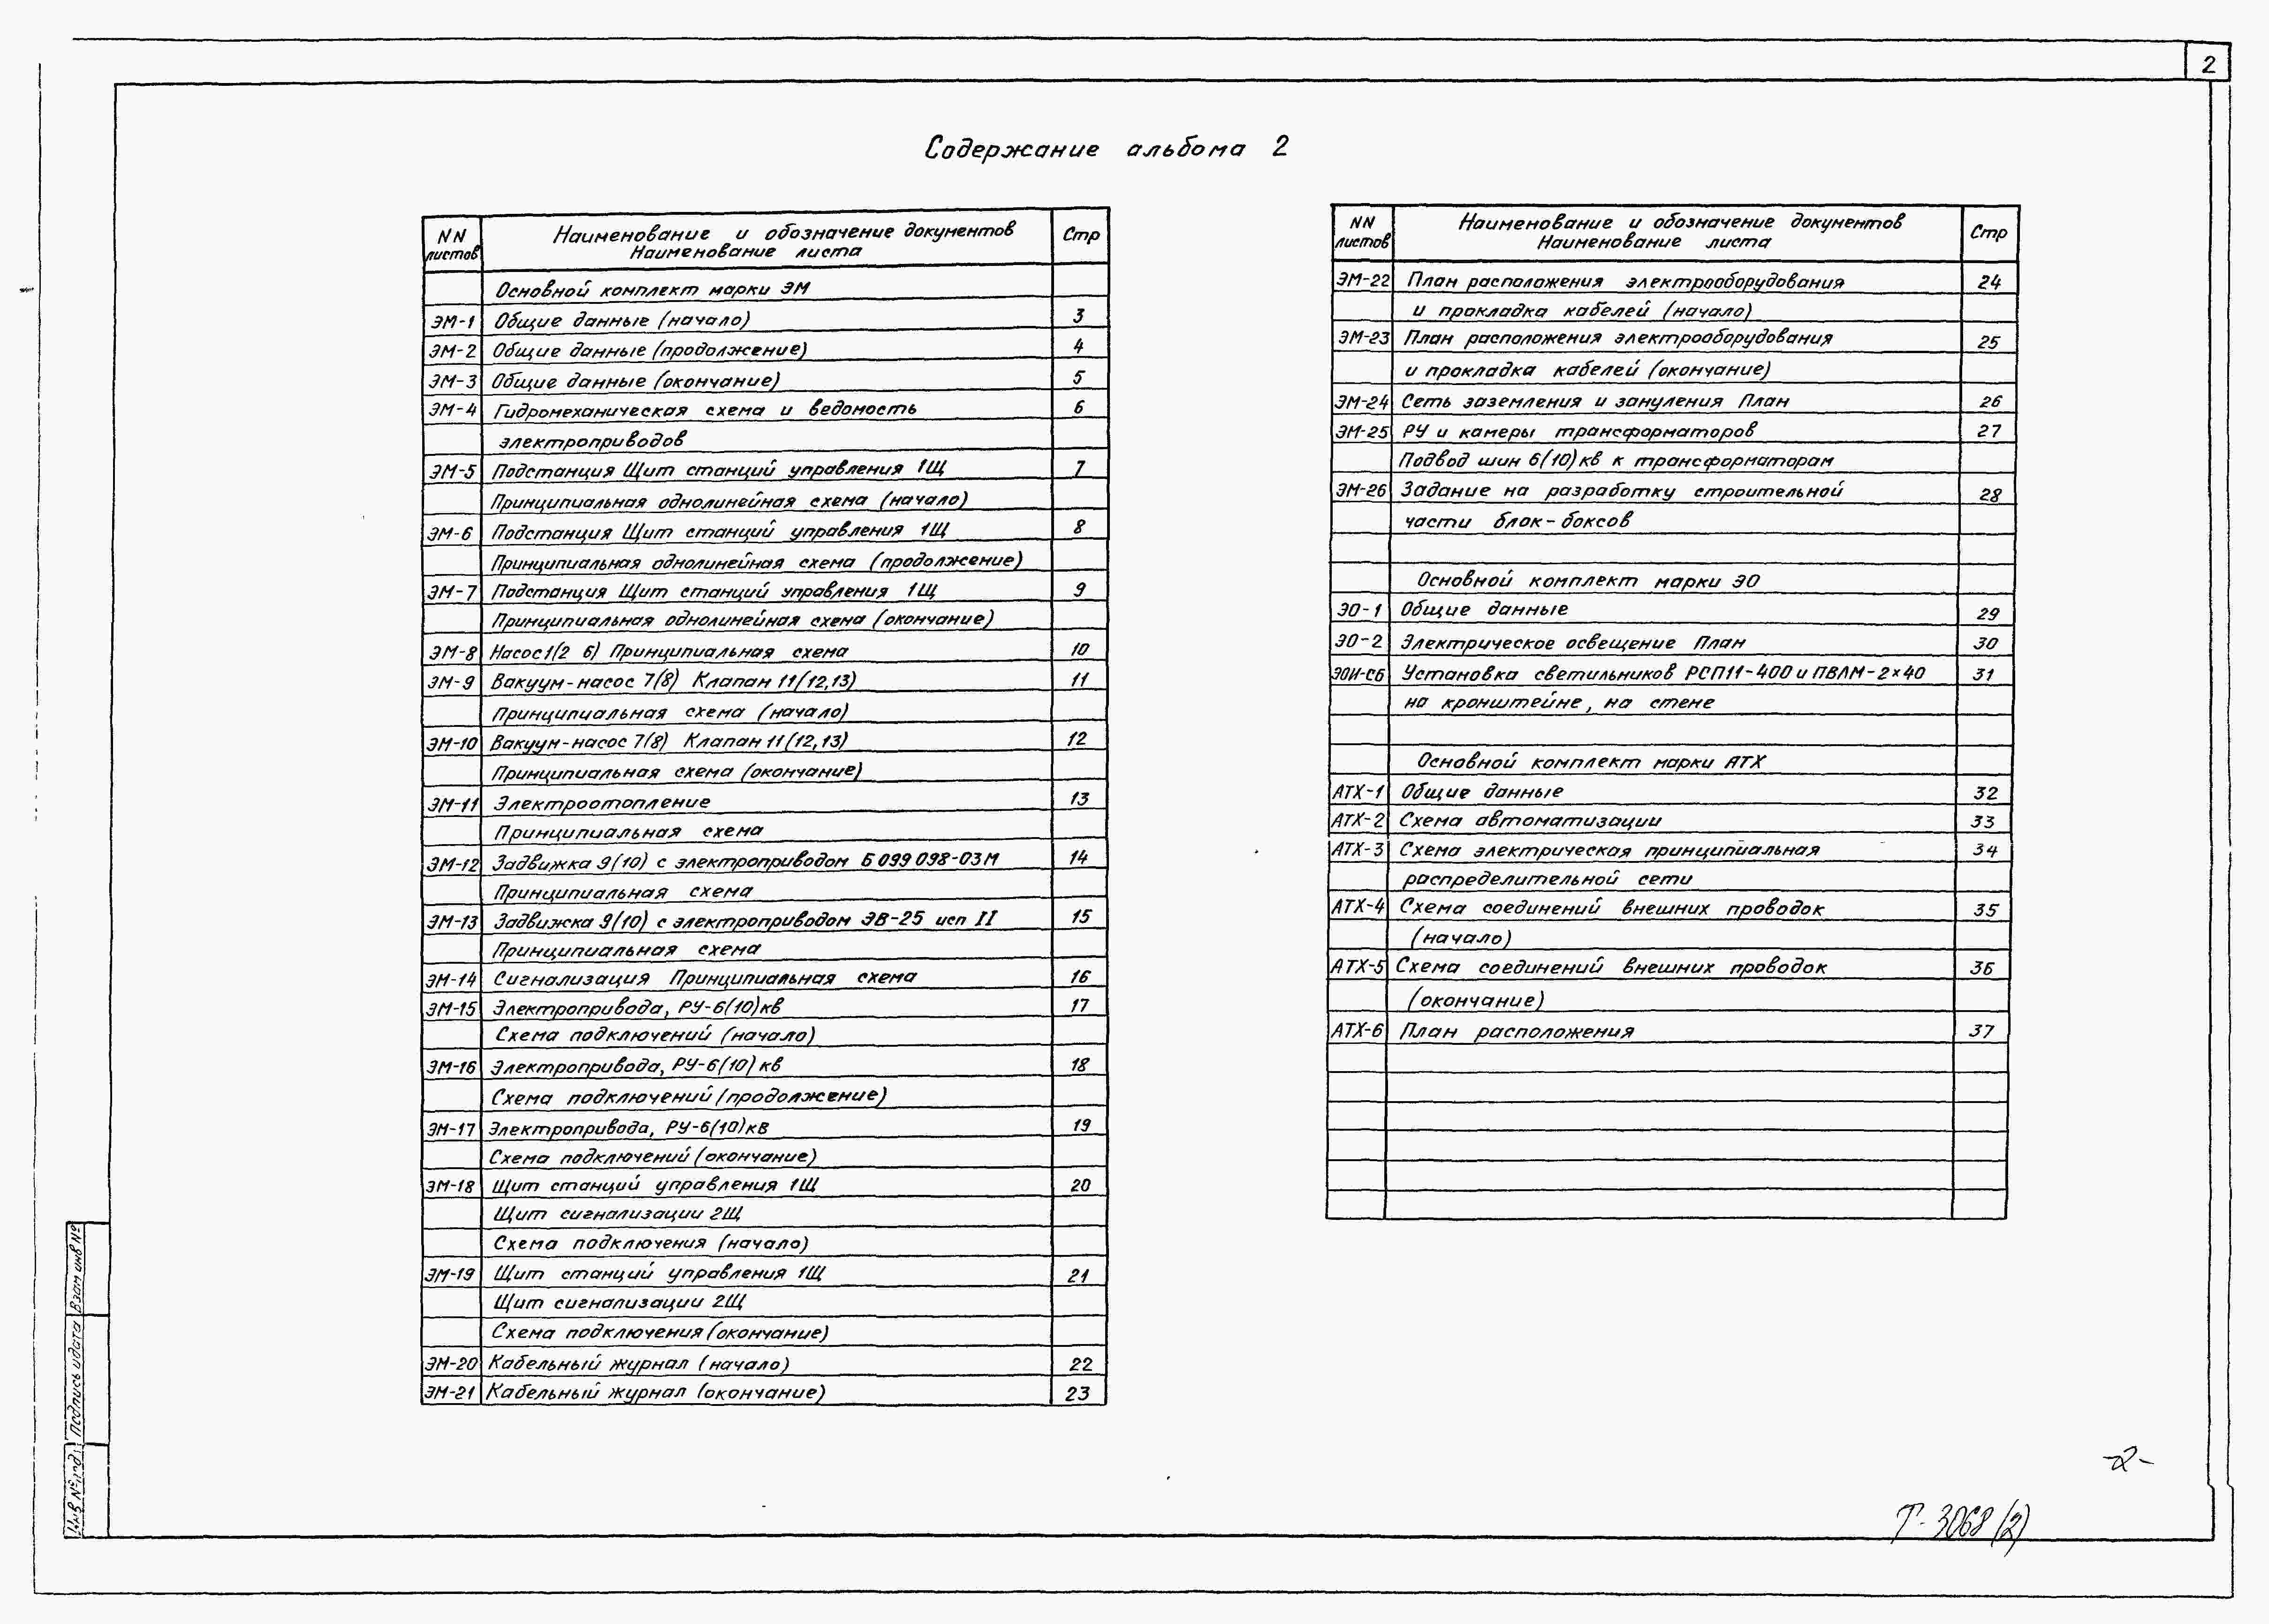 2
Содержание альбома 2
NN листов
Наименование и обозначение документов
Наименование листа
Стр
Основной комплект марки ЭМ
ЭМ-1 Общие данные (начало) 3
ЭМ-2 Общие данные (продолжение) 4
ЭМ-3 Общие данные (окончание) 5
ЭМ-4 Гидромеханическая схема и ведомость 6
электроприводов
ЭМ-5 Подстанция Щит станций управления 1Щ 7
Принципиальная однолинейная схема (начало)
ЭМ-6 Подстанция Щит станций управления 1Щ 8
Принципиальная однолинейная схема (продолжение)
ЭМ-7 Подстанция Щит станций управления 1Щ 9
Принципиальная однолинейная схема (окончание)
ЭМ-8 Насос 1(2 6) Принципиальная схема 10
ЭМ-9 Вакуум-насос 7(8) Клапан 11(12,13) 11
Принципиальная схема (начало)
ЭМ-10 Вакуум-насос 7(8) Клапан 11(12,13) 12
Принципиальная схема (окончание)
ЭМ-11 Электроотопление 13
Принципиальная схема
ЭМ-12 Задвижка 9(10) с электроприводом Б 099 098-03М 14
Принципиальная схема
ЭМ-13 Задвижка 9(10) с электроприводом ЭВ-25 исп II 15
Принципиальная схема
ЭМ-14 Сигнализация Принципиальная схема 16
ЭМ-15 Электропривода, РУ-6(10)кв 17
Схема подключений (начало)
ЭМ-16 Электропривода, РУ-6(10)кв 18
Схема подключений (продолжение)
ЭМ-17 Электропривода, РУ-6(10)кв 19
Схема подключений (окончание)
ЭМ-18 Щит станций управления 1Щ 20
Щит сигнализации 2Щ
Схема подключения (начало)
ЭМ-19 Щит станций управления 1Щ 21
Щит сигнализации 2Щ
Схема подключения (окончание)
ЭМ-20 Кабельный журнал (начало) 22
ЭМ-21 Кабельный журнал (окончание) 23
NN листов
Наименование и обозначение документов
Наименование листа
Стр
ЭМ-22 План расположения электрооборудования 24
и прокладка кабелей (начало)
ЭМ-23 План расположения электрооборудования 25
и прокладка кабелей (окончание)
ЭМ-24 Сеть заземления и зануления План 26
ЭМ-25 РУ и камеры трансформаторов 27
Подвод шин 6(10)кв к трансформаторам
ЭМ-26 Задание на разработку строительной 28
части блок-боксов
Основной комплект марки ЭО
ЭО-1 Общие данные 29
ЭО-2 Электрическое освещение План 30
ЭОИ-СБ Установка светильников РСП11-400 и ПВЛМ-2×40 31
на кронштейне, на стене
Основной комплект марки АТХ
АТХ-1 Общие данные 32
АТХ-2 Схема автоматизации 33
АТХ-3 Схема электрическая принципиальная 34
распределительной сети
АТХ-4 Схема соединений внешних проводок 35
(начало)
АТХ-5 Схема соединений внешних проводок 36
(окончание)
АТХ-6 План расположения 37
Взам инв №
Подпись и дата
Инв № подл
-2-
Т-3068(2)